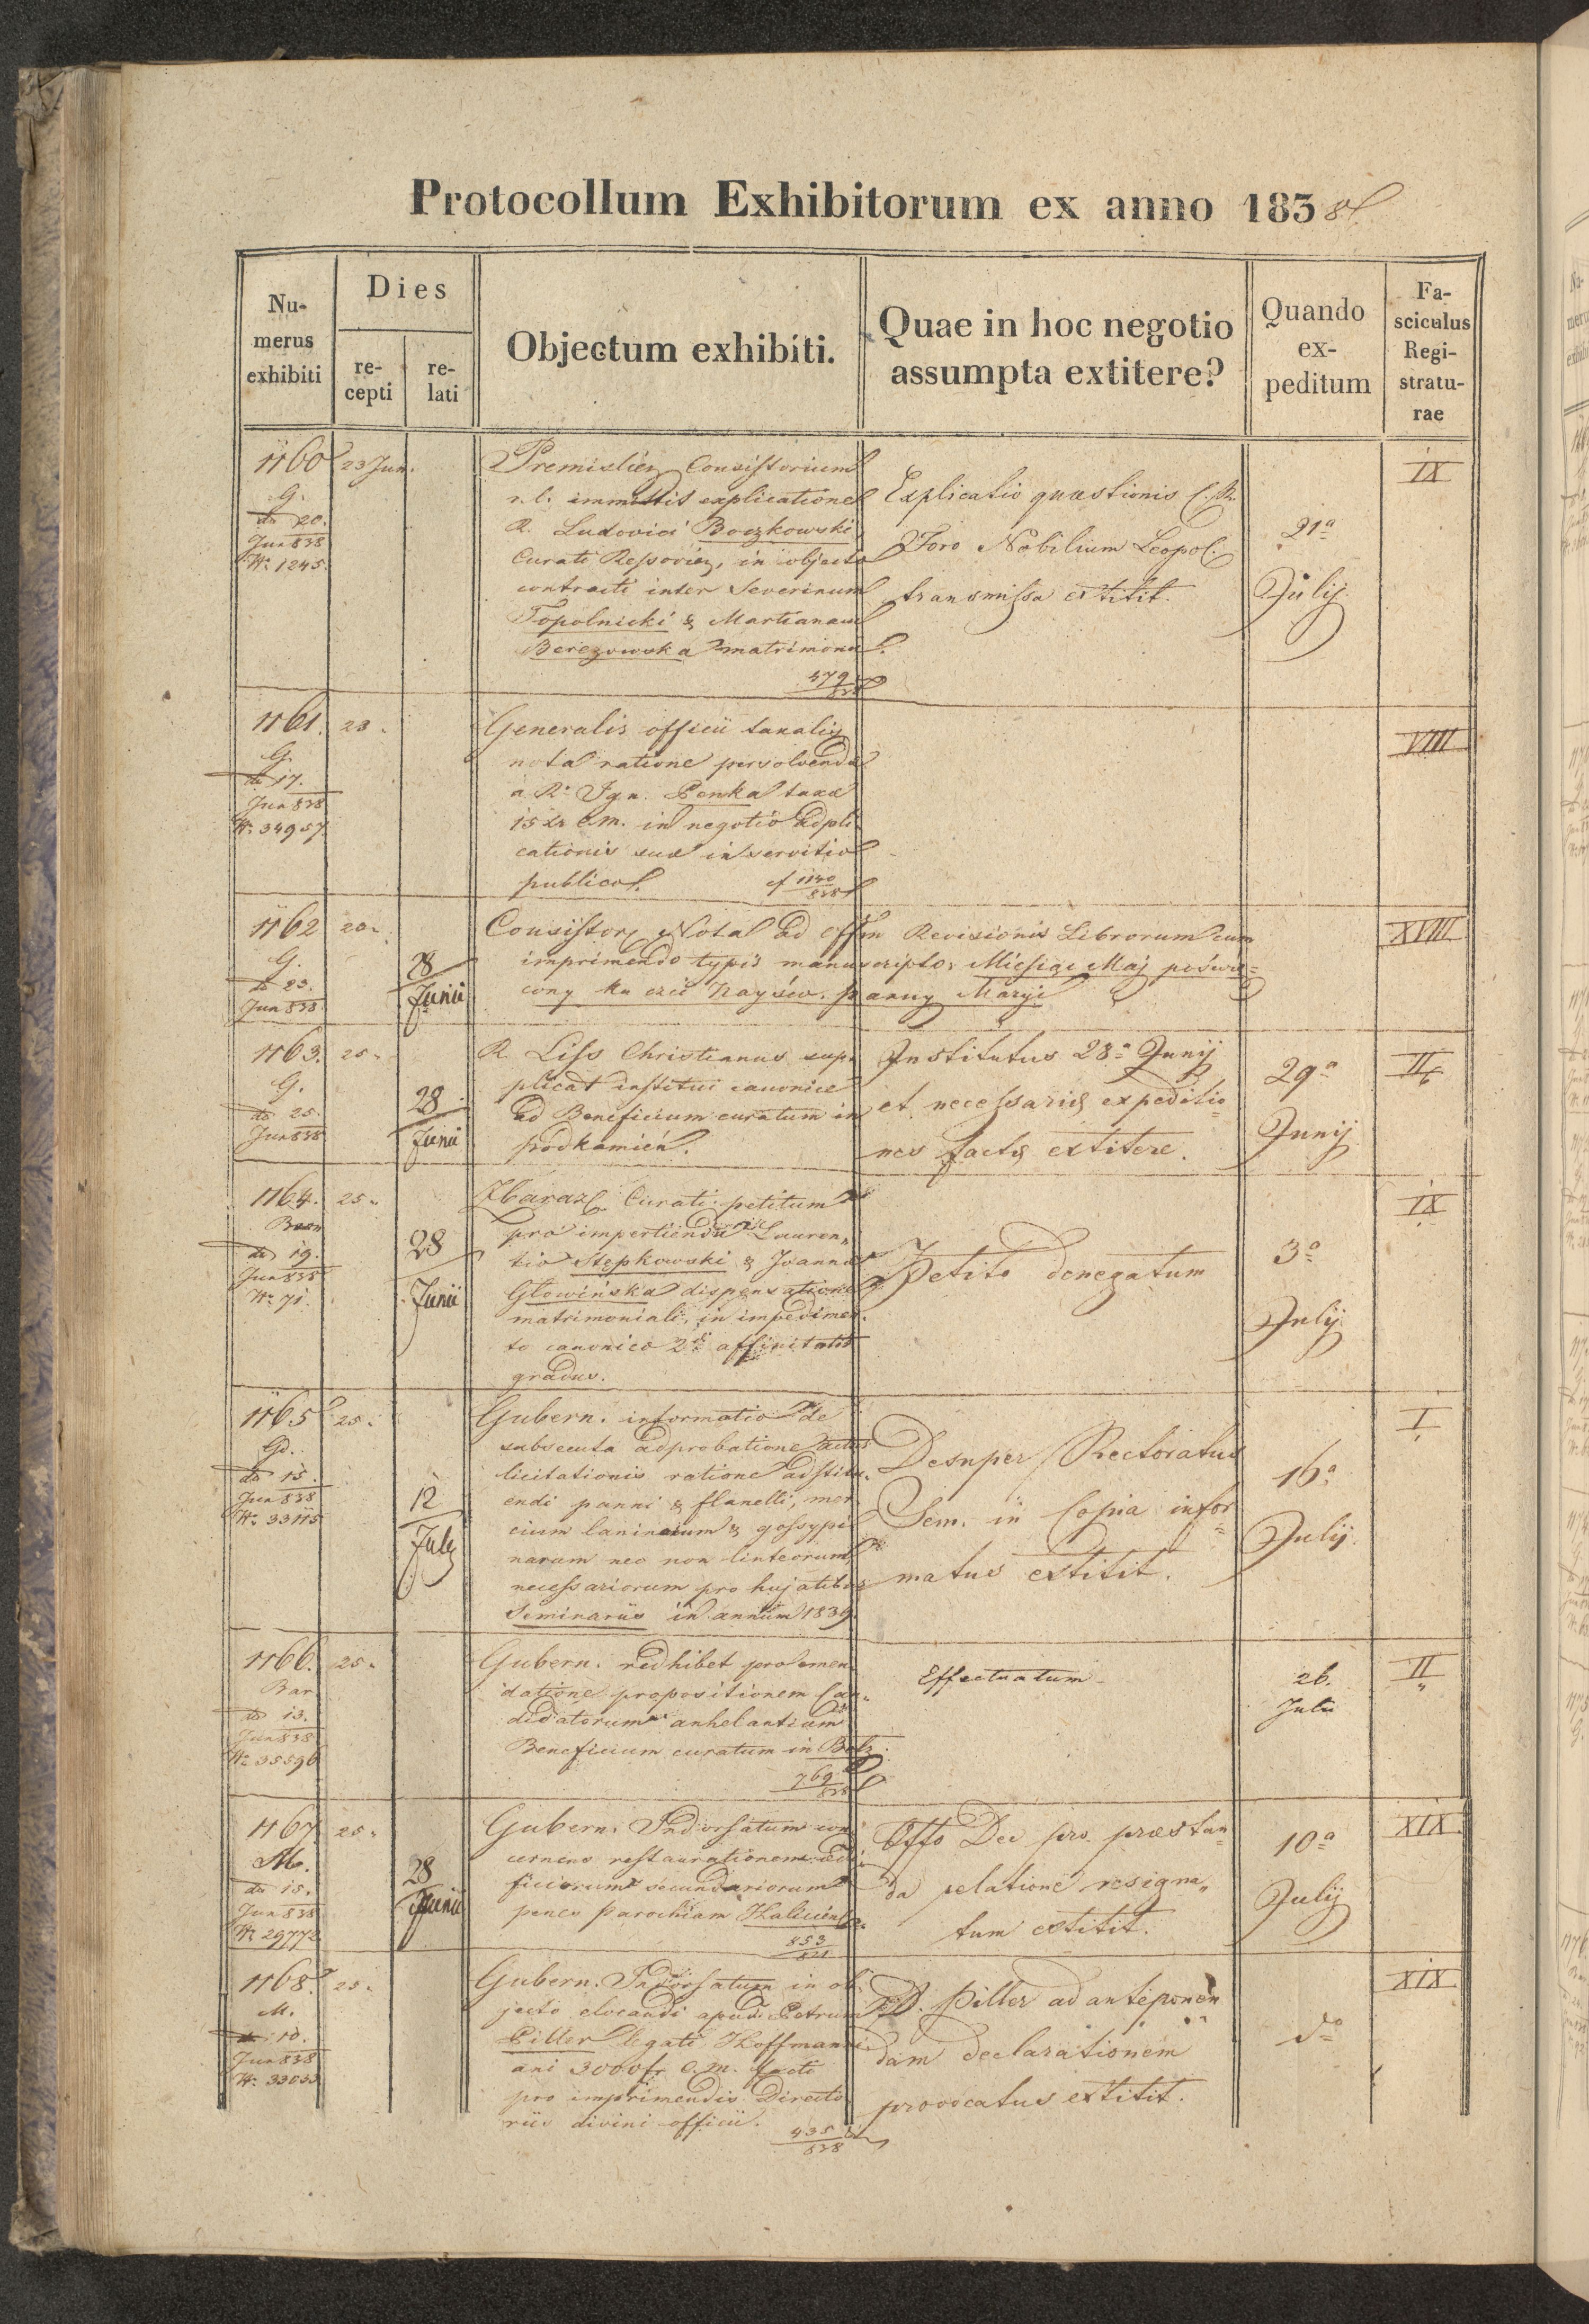 Protocollum Exhibitorum ex anno 1838
Nu-
merus
exhibiti
Dies
re-
cepti
re-
lati
Objectum exhibiti.
Quae in hoc negotio
assumpta extitere?
Quando
ex-
peditum
Fa-
sciculus
Regi-
stratu-
rae
1160
23 Jun.
G.
do 20.
Jun 838
Nr 1245.
Premislien Consistorium
r. l. immittit explicatione
R. Ludovici Boczkowski
Curati Ressovien, in objecto
contracti inter Severinum
Topolnicki & Martianam
Berezowska matrimonii.
479
838
Explicatio quæstionis C. R.
Foro Nobilium Leopol.
transmissa extitit.
21a
July
IX
1161.
23.
G.
do 17.
Jun 838
Nr. 34957
Generalis officii taxalis
nota ratione persolvendæ
a R. Ign. Penka taxæ
15 xr c.m. in negotio adpli
cationis suæ in servitio
publico.
cf 1140
838
VIII
1162
23.
G.
do 23.
Jun 838.
28
Junii
Consistor Nota ad offm Revisionis Librorum cum
imprimendo typis manuscripto, Miesiąc Maj poświę=
cony ku czci Nayśw. Panny Maryi
XVIII
1163.
25.
G.
do 25.
Jun 838
28
Junii
R. Liss Christianus sup
plicat institui canonice
ad Beneficium curatum in
podkamień.
Institutus 28a Junij
et necessariæ expeditio=
nes factæ extitere.
29a
Junij
II
1164.
25.
do 19.
Jun 838
Nr. 71.
28
Junii
Zbaraz Curati petitum
pro impertienda Lauren„
tio Stępkowski & Joannæ
Głowińska dispensatione
matrimoniali, in impedimen.
to canonico 2di affinitatis
gradus.
Petito denegatum
3a
July
IX
1165
25.
Gd.
do 15.
Jun 838
Nr. 33115
12
July
Gubern. informatio de
subsecuta adprobatione actus
licitationis ratione adstitu.
endi panni & flanelli, mer
cium laninarum & gossypi
narum nec non linteorum
necessariorum pro hujatibus
Seminariis in annum 1839.
Desuper Rectoratus
Sem. in Copia infor=
matus extitit.
16a
July
I
1166.
25.
Bar
do 13.
Jun 838
Nr. 35596
Gubern. redhibet pro emen
datione propositionem Can„
didatorum anhelantium
Beneficium curatum in Bełz.
769
838
Effectuatum
26.
Julii
II
1167
25.
M.
do 15.
Jun 838
Nr 29772
28
Junii
Gubern. Indorsatum con
cernens restaurationem ædi
ficiorum secundariorum
penes Parochiam Halicien
853
821
Offo Dec pro præstan
da relatione resigna„
tum extitit.
10a
July
XIX
1168.
25.
M.
do 10.
Jun 838
Nr. 33053
Gubern. Indorsatum in ob
jecto elocandi apud Petrum
Piller legati Hoffmanni
ani 3000 fr c.m. facti
pro imprimendis Directo
riis divini officii.
435
838
D. Piller ad anteponen
dam declarationem
provocatus extitit.
do
XIX